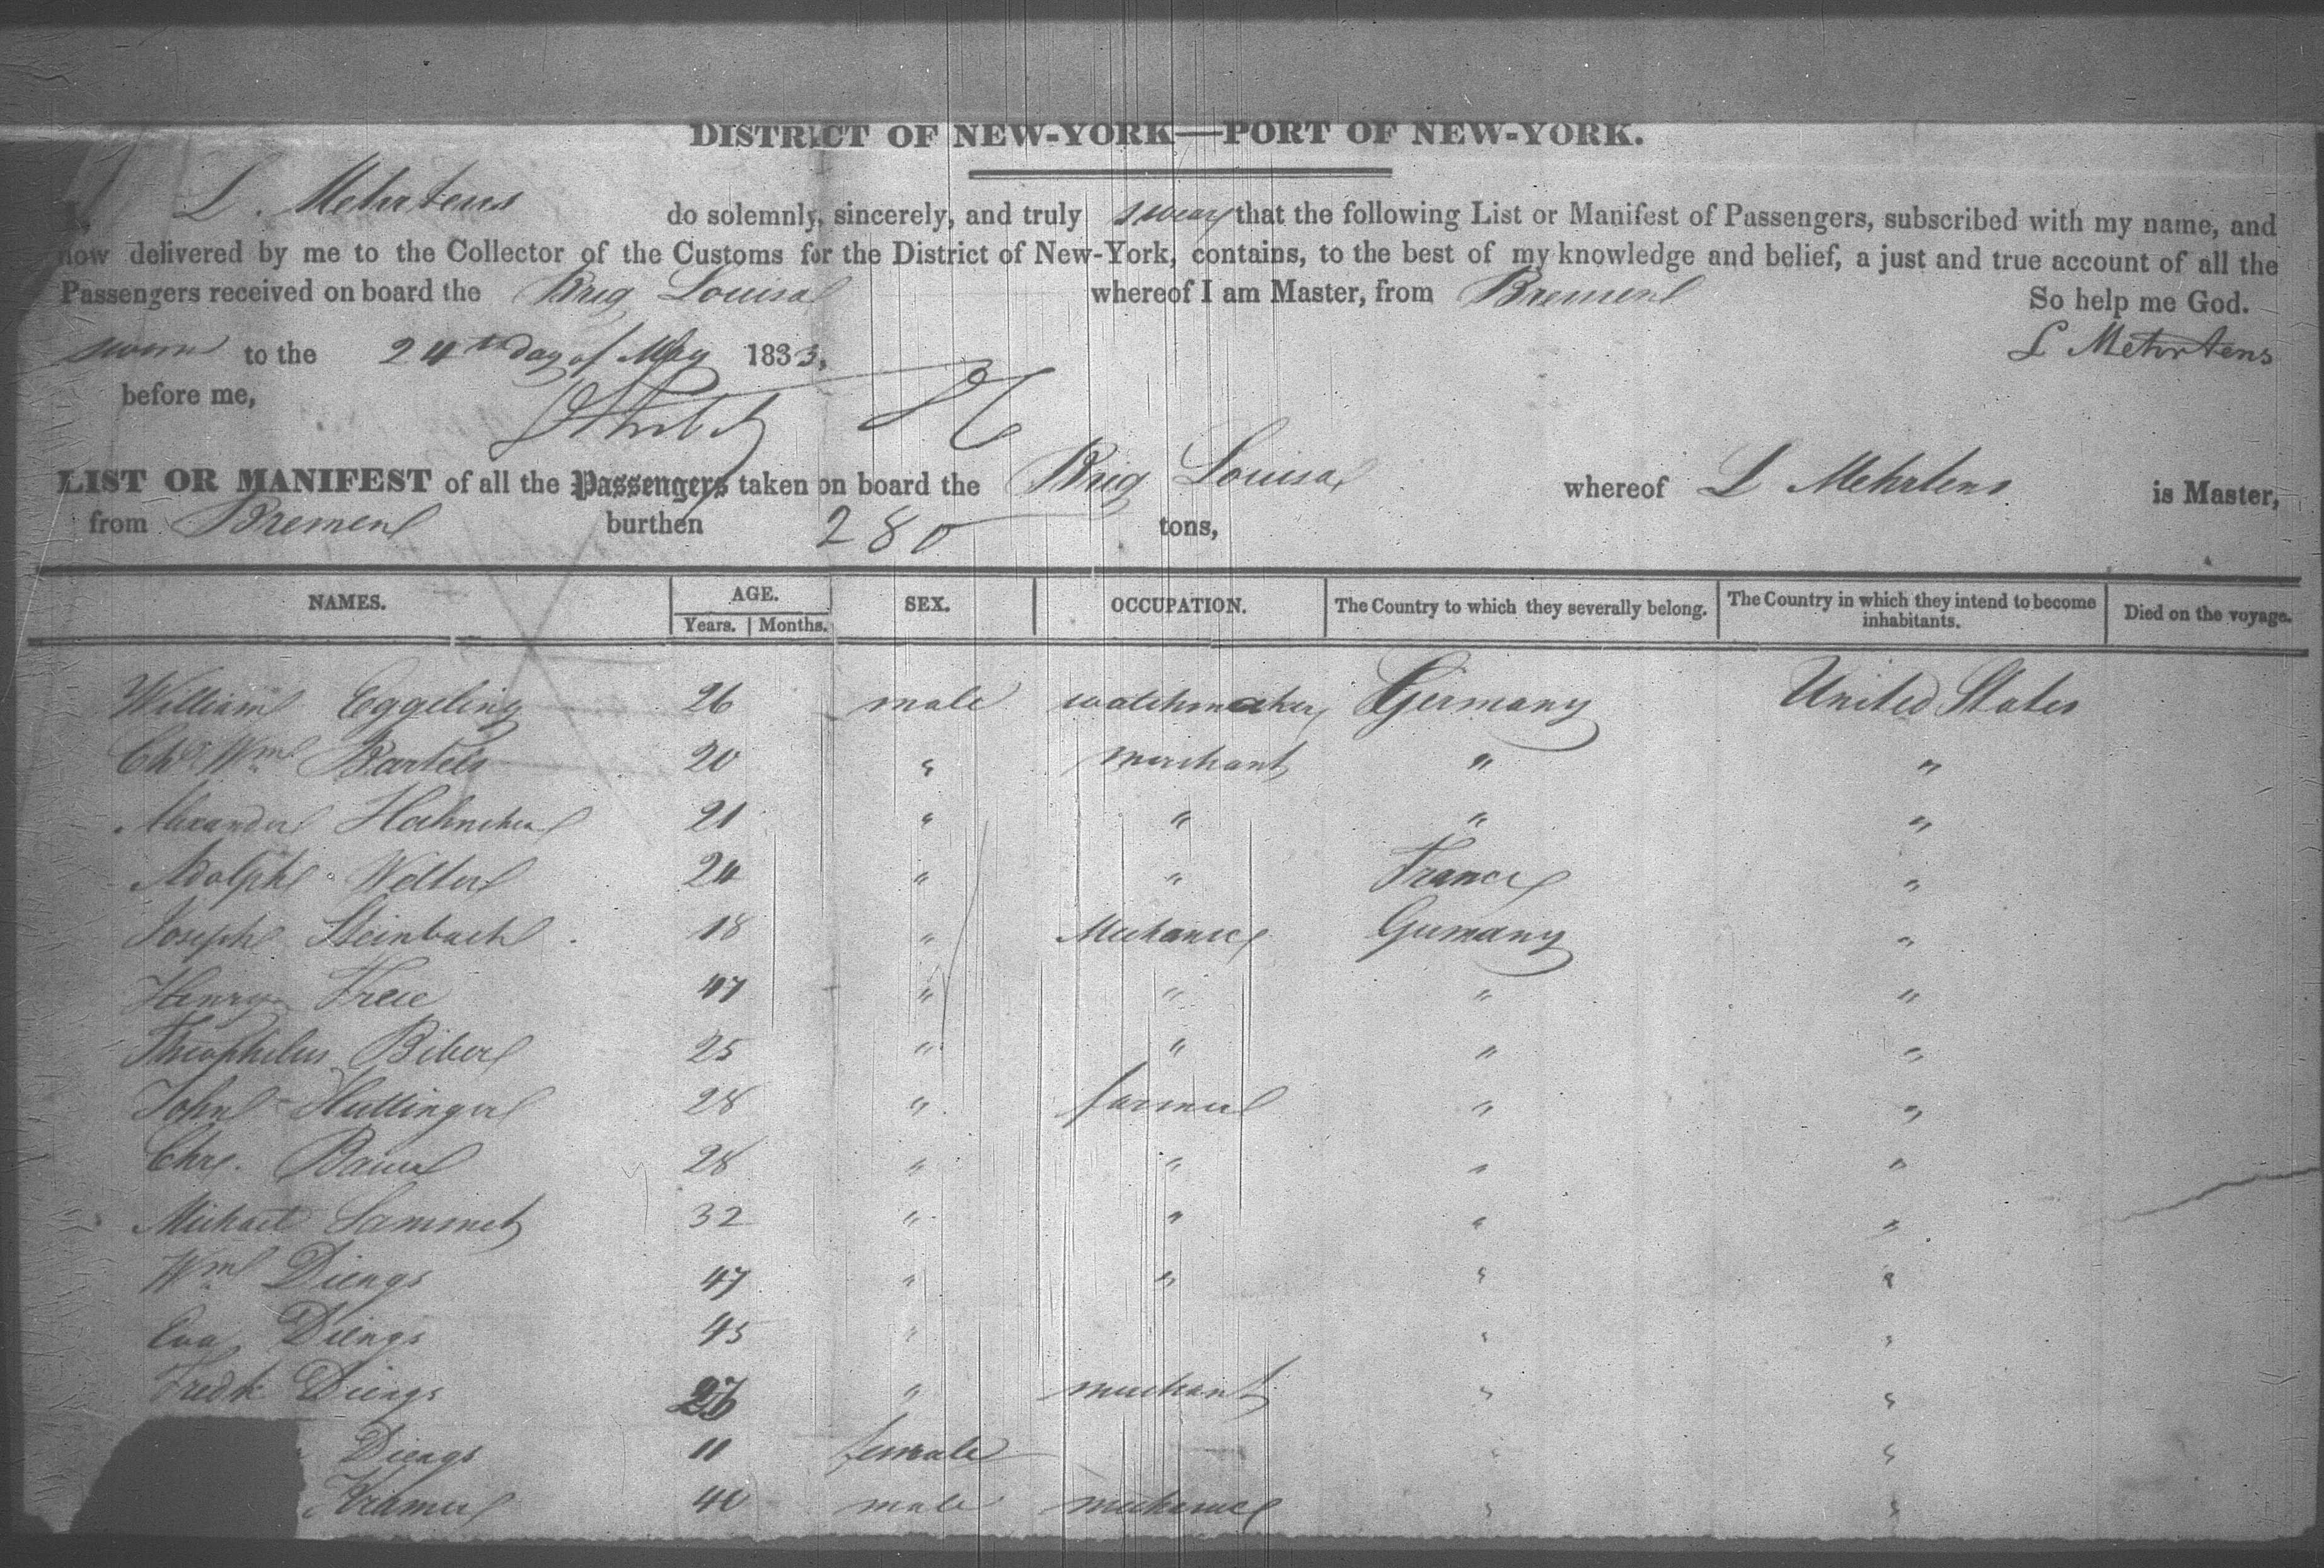 DISTRICT OF NEW-YORK—PORT OF NEW-YORK.
I, L. Mehrtens do solemnly, sincerely, and truly swear that the following List or Manifest of Passengers, subscribed with my name, and
now delivered by me to the Collector of the Customs for the District of New-York, contains, to the best of my knowledge and belief, a just and true account of all the
Passengers received on board the Brig Louisa whereof I am Master, from Bremen So help me God.
sworn to the 24th day of May 1833, L Mehrtens
before me,
LIST OR MANIFEST of all the Passengers taken on board the Brig Louisa whereof L Mehrtens is Master,
from Bremen burthen 280 tons,
NAMES. AGE. Years. Months. SEX. OCCUPATION. The Country to which they severally belong. The Country in which they intend to become inhabitants. Died on the voyage.
William Eggeling 26 male watchmaker Germany United States
Chs Wm Bartels 20 " merchant " "
Alexander 21 " " " "
Adolph Welter 24 " " France "
Joseph Steinbach 18 " Mechanic Germany "
Henry Freie 47 " " " "
Theophilus Biber 25 " " " "
John Hullinger 28 " farmer " "
Chrs. Bauer 28 " " " "
Michael Sammet 32 " " " "
Wm Diengs 47 " " " "
Eva Diengs 45 " " "
Fredk Diengs " merchant " "
Diengs 11 female " "
Kramer 40 male mechanic " "